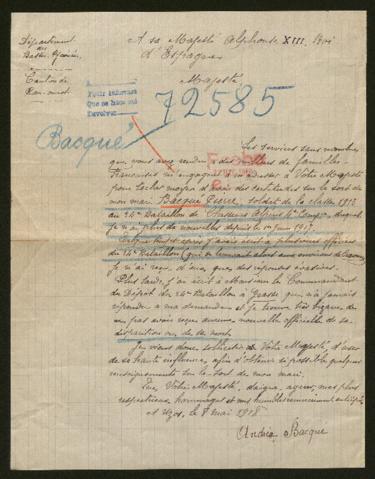 Département
des
Basses-Pyrénées
Canton de
Pau-ouest
A sa Majesté Alphonse XIII. Roi
d'Espagne
Majesté
A
Pour informer
Que se hace
Devolver
72585
Bacqué
Les services sans nombre
que vous avez rendus à des milliers de familles
françaises m'engagent à m'adresser à Votre Majesté
pour tâcher moyen d'avoir des certitudes sur le sort de
mon mari Bacque Pierre, soldat de la classe 1913
au 24e Bataillon de Chasseurs Alpins 4e Comp., duquel
je n'ai plus de nouvelles depuis le 1er juin 1917.
Quelque temps après j'avais écrit à plusieurs officiers
du 24e Bataillon (qui se trouvait alors aux environs de
je n'ai reçu d'eux que des réponses évasives.
Plus tard, j'en écrit à Monsieur le Commandant
du Dépôt du 24e Bataillon à Grasse qui n'a jamais
répondu à ma demande et je trouve très bizarre de
ne pas avoir reçu aucune nouvelle officielle de sa
disparition ou de sa mort.
Je viens donc solliciter de Votre Majesté, d'user
de sa haute influence, afin d'obtenir si possible quelques
renseignements sur le sort de mon mari.
Que Votre Majesté, daigne, agréer, mes plus
respectueux hommages et mes humbles remerciements anticipés
le 8 mai 1918
Bacque